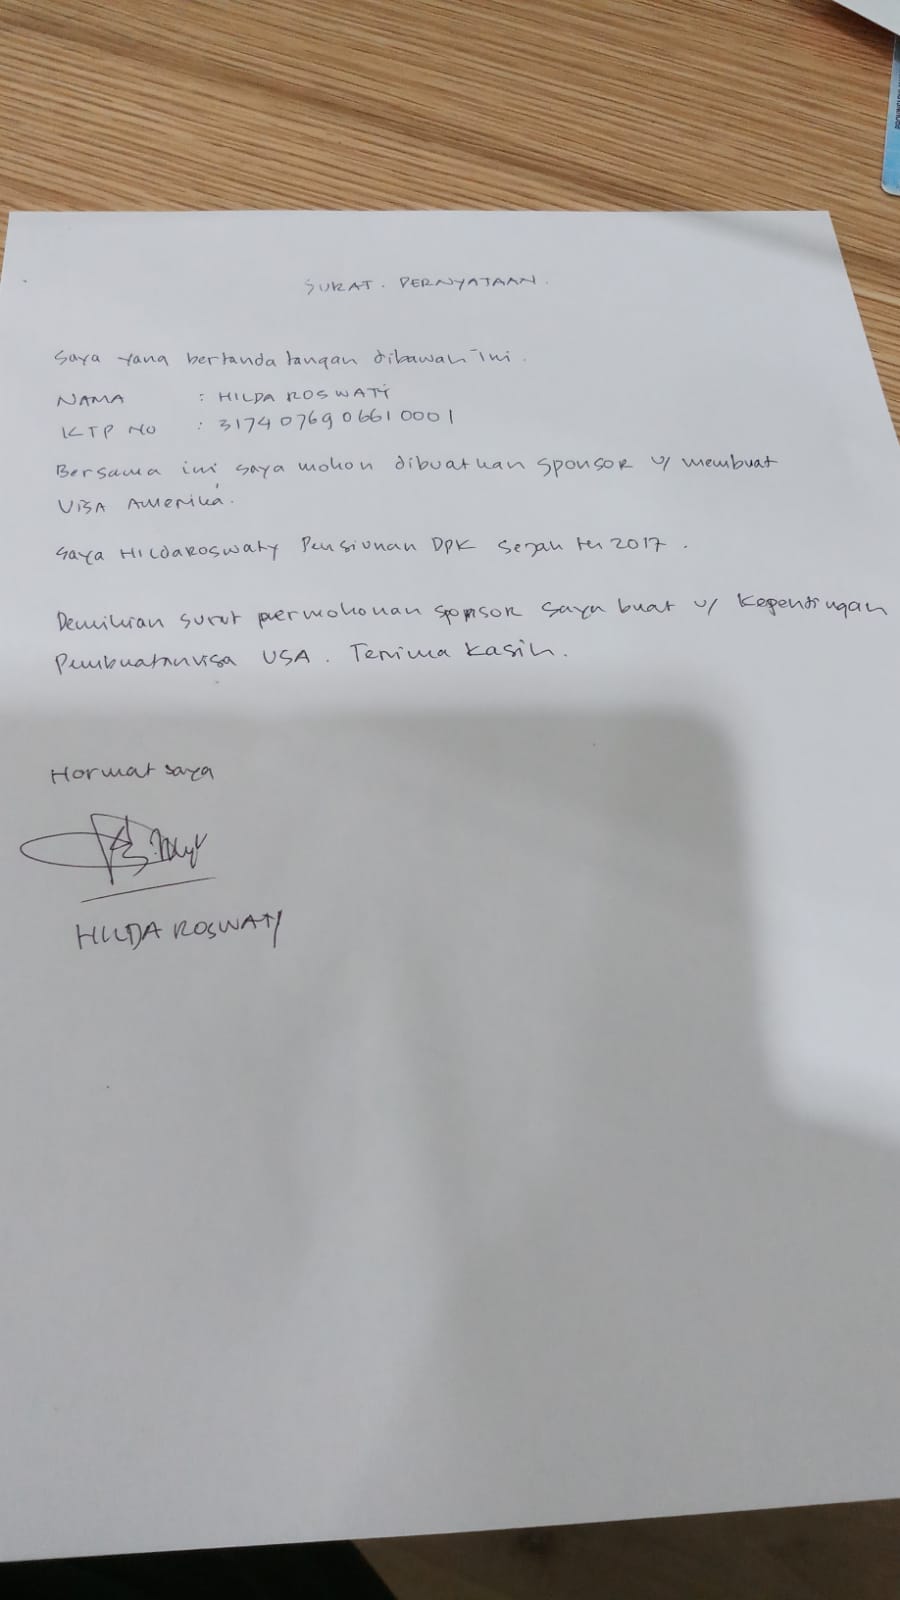 SURAT. PERNYATAAN.
Saya yang bertanda tangan dibawah ini.
NAMA : HILDA ROSWATY
KTP NO : 3174076906610001
Bersama ini saya mohon dibuatkan sponsor u/ membuat
VISA Amerika.
Saya HILDA ROSWATY Pensiunan DPK sejak th 2017.
Demikian surat permohonan sponsor saya buat u/ kepentingan
Pembuatan visa USA. Terima kasih.
Hormat saya
HILDA ROSWATY